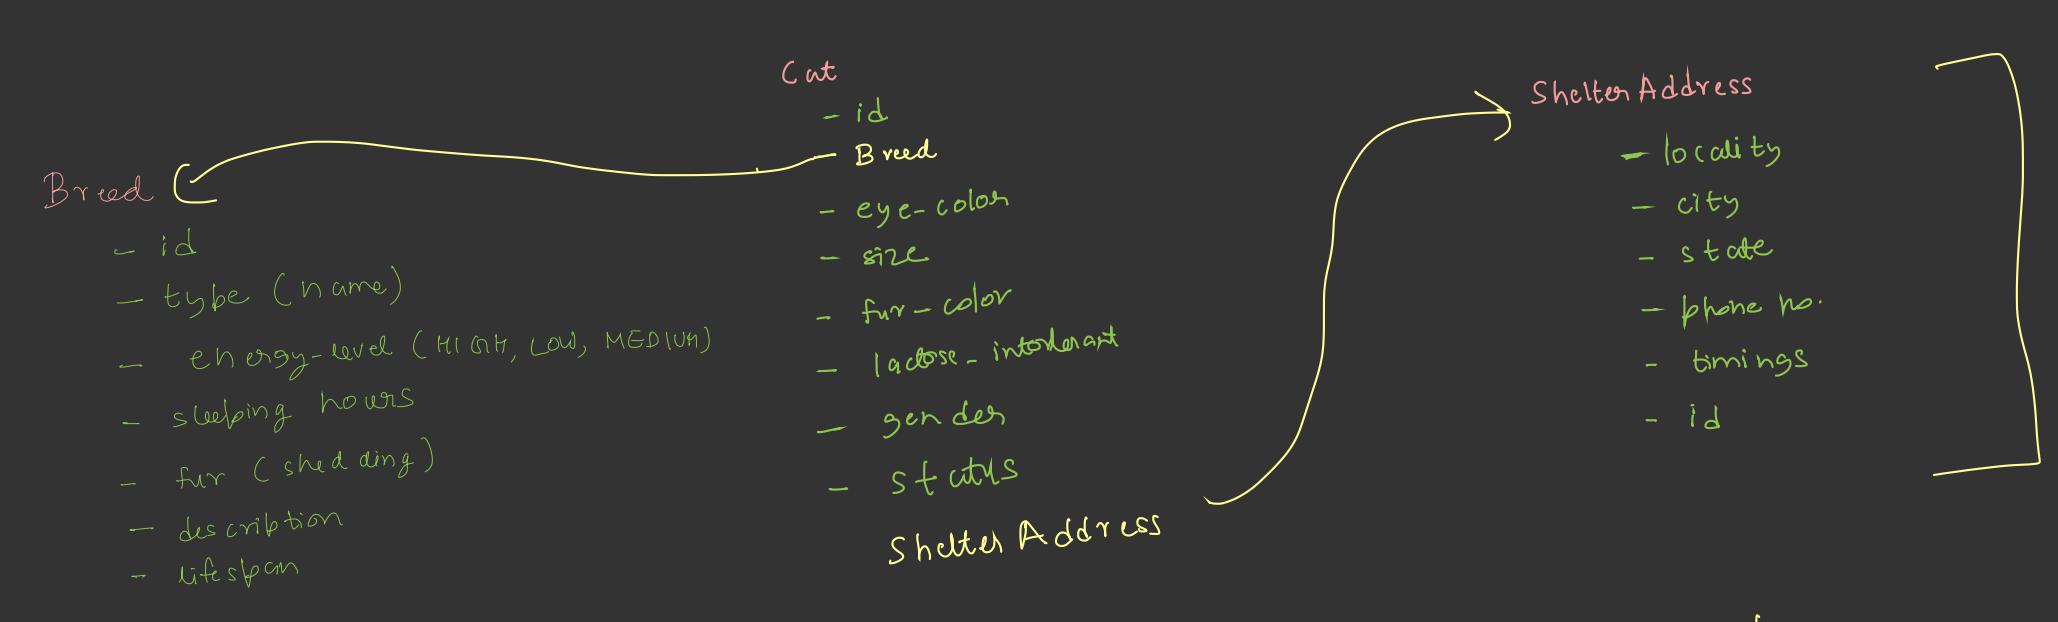 Cat
- id
- Breed
- eye-color
- size
- fur-color
- lactose-intolerant
- gender
- status
Shelter Address
Breed
- id
- type (name)
- energy-level (HIGH, LOW, MEDIUM)
- sleeping hours
- fur (shedding)
- description
- lifespan
Shelter Address
- locality
- city
- state
- phone no.
- timings
- id